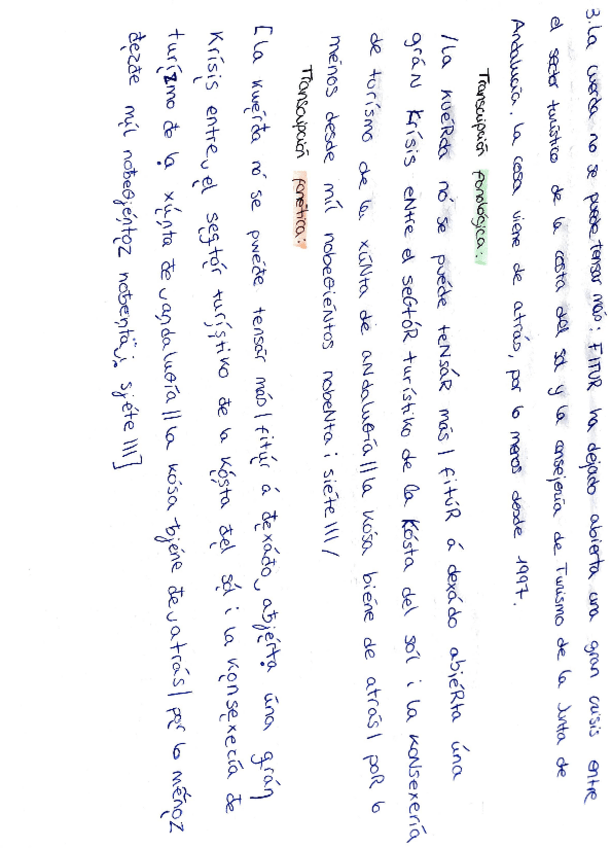 3. La cuerda no se puede tensar más: FITUR ha dejado abierta una gran crisis entre
el sector turístico de la costa del sol y la consejería de Turismo de la Junta de
Andalucía. La cosa viene de atrás, por lo menos desde 1997.
Transcripción fonológica:
/la kuéRda nó se puéde teNsáR más| fitúR á dexádo abiéRta úna
gráN krísis eNtre el seGtóR turístiko de la kósta del sól i la koNsexería
de turísmo de la xúNta de aNdaluθía||la kósa biéne de atrás| poR lo
ménos desde míl nobeθiéNtos nobeNta i siéte|||/
Transcripción fonética:
[la kwérđa nó se pwéđe tensár más| fitúr á đexáđo abjérta úna grán
krísis entre el segtór turístiko de la kósta đel sól i la konsexería đe
turízmo đe la xúnta đe andaluθía||la kósa bjéne đe atrás| por lo ménoz
đezđe míl nobeθjéntoz nobentai sjéte|||]